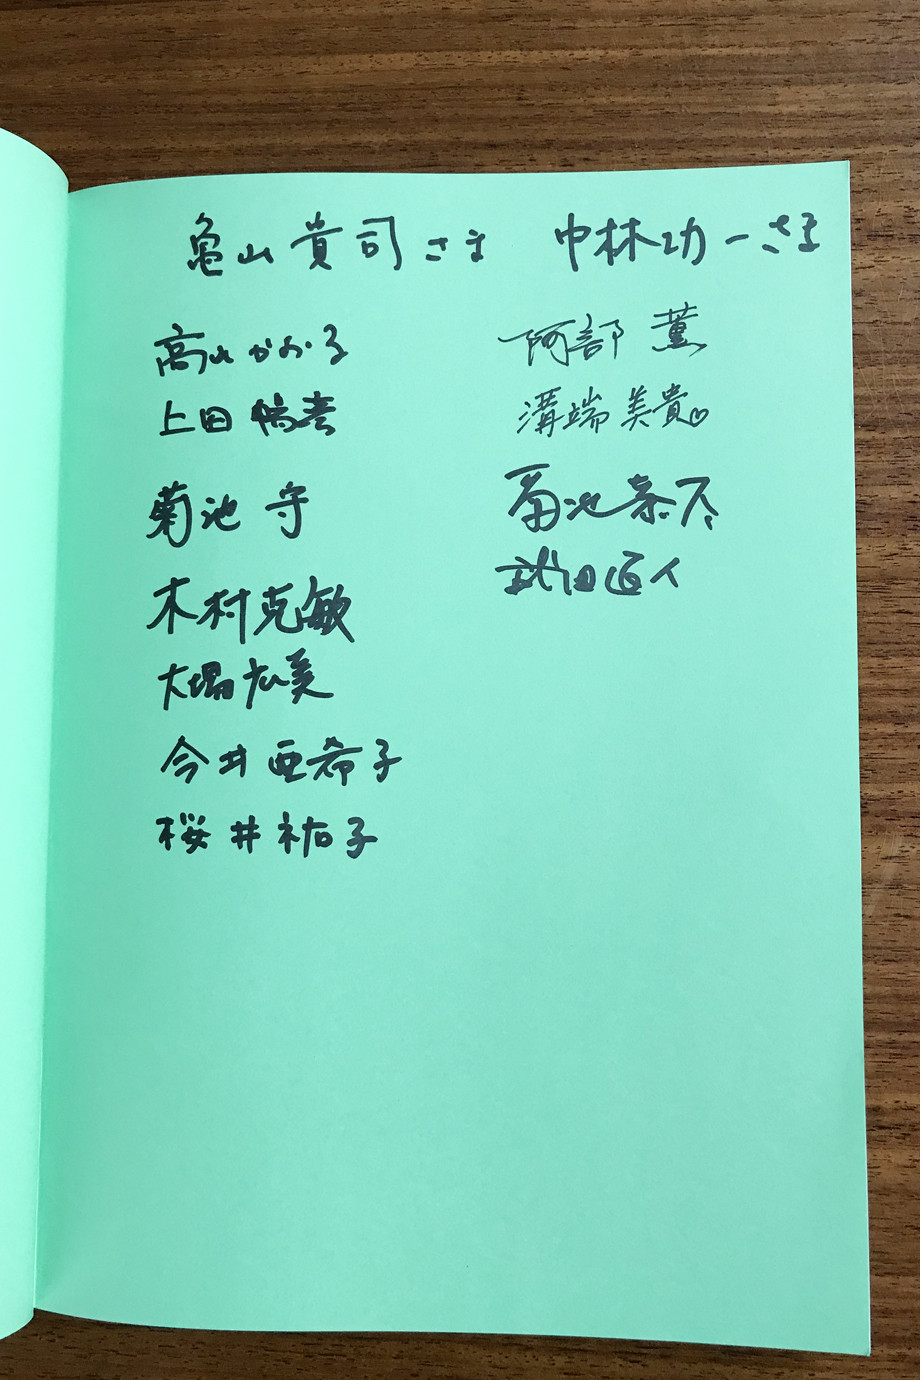 亀山貴司さま
中林功一さま
高山かおる
上田
菊池 守
木村克敏
大場広美
今井亜希子
桜井祐子
阿部 薫
溝端美貴♡
菊池恭
武田直人